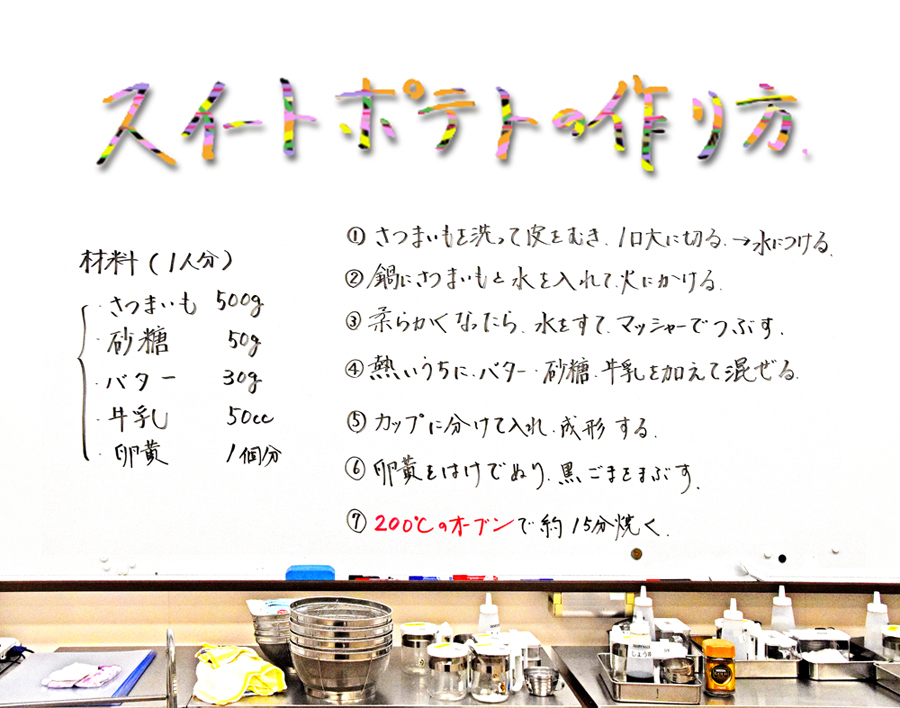 スイートポテトの作り方.
材料(1人分)
・さつまいも 500g
・砂糖 50g
・バター 30g
・牛乳 50cc
・卵黄 1個分
① さつまいもを洗って皮をむき、1口大に切る。→水につける。
② 鍋にさつまいもと水を入れて、火にかける。
③ 柔らかくなったら、水をすて、マッシャーでつぶす。
④ 熱いうちに、バター・砂糖・牛乳を加えて混ぜる。
⑤ カップに分けて入れ、成形する。
⑥ 卵黄をはけでぬり、黒ごまをまぶす。
⑦ 200℃のオーブンで約15分焼く。